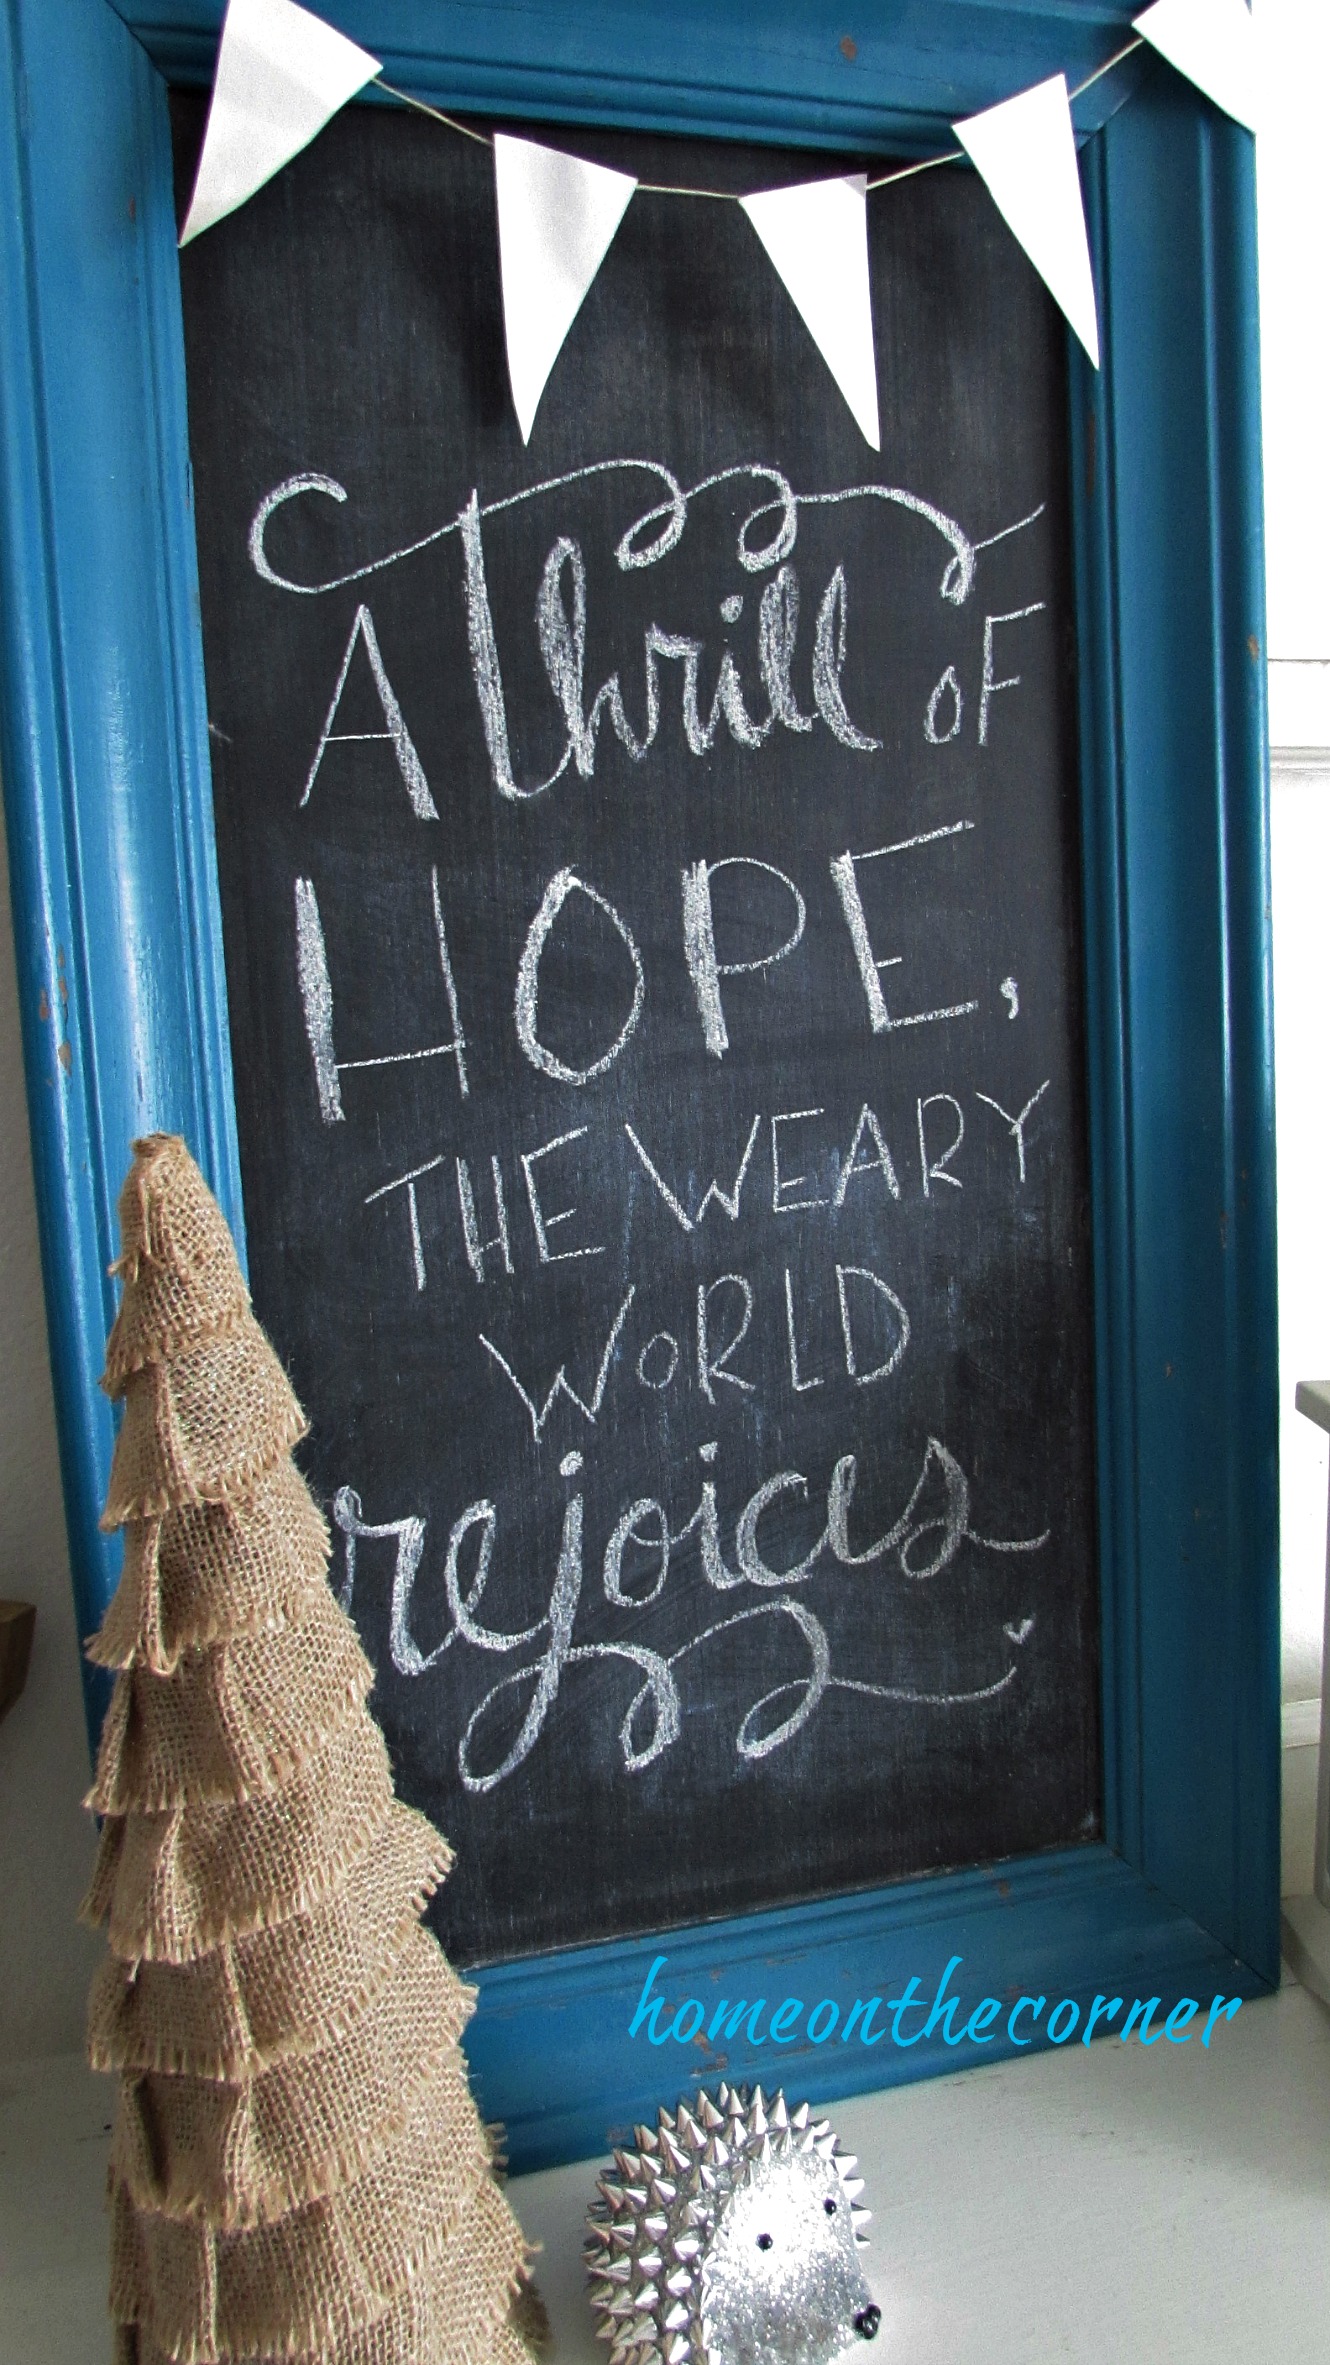 A thrill OF
HOPE,
THE WEARY
WORLD
rejoices
homeonthecorner